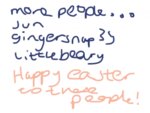 more people...
jun
gingersnap33
littlebeary
Happy easter
to these
people!